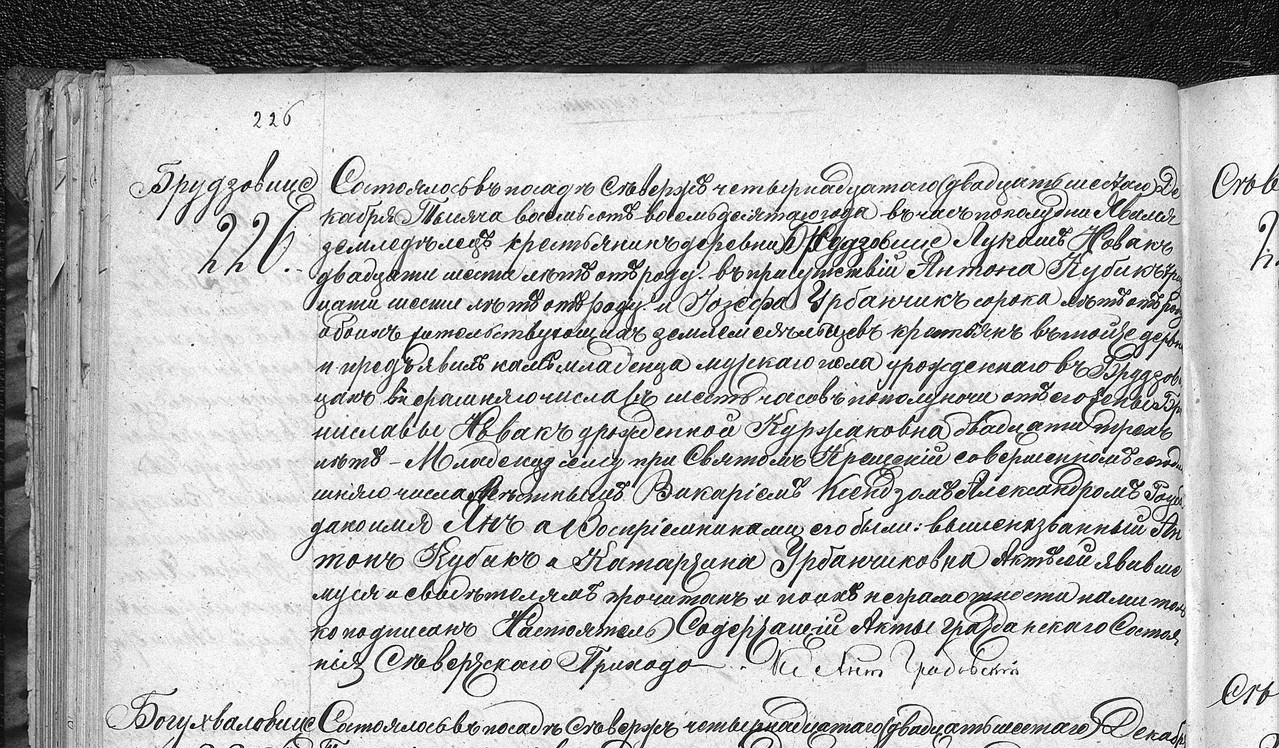 226
Брудзовице
226.
Состоялось въ посадѣ Сѣвержѣ четырнадцатаго (двадцать шестаго) Де
кабря Тысяча восемьсотъ восемьдесятаго года въ часъ пополудни Явился
земледѣлецъ крестьянинъ деревни Брудзовице Лукашъ Новакъ
двадцати шести лѣтъ отъ роду въ присутствіи Антона Кубикъ
цати шести лѣтъ отъ роду и Іозефа Урбанчикъ сорока лѣтъ отъ роду
обоихъ жительствующихъ крестьянъ въ той же деревнѣ
и предъявилъ намъ младенца мужскаго пола урожденнаго въ Брудзов
цахъ вчерашняго числа въ шесть часовъ пополуночи отъ его жены Бро
ниславы Новакъ урожденной Куржаковна двадцати трехъ
лѣтъ – Младенцу сему при Святомъ Крещеніи совершенномъ сегодня
шняго числа Мѣстнымъ Викаріемъ Ксендзомъ Александромъ
дано имя Янъ а Воспріемниками его были: вышесказанный Ан
тонъ Кубикъ и Катаржина Урбанчиковна Актъ сей явивше
муся и свидѣтелямъ прочитанъ и по ихъ неграмотности нами толь
ко подписанъ Настоятель Содержащій Акты гражданскаго Состоя
нія Сѣвержскаго Прихода Кс Ант Градовскій
Богухваловице
Состоялось въ посадѣ Сѣвержѣ четырнадцатаго (двадцать шестаго) Декабр